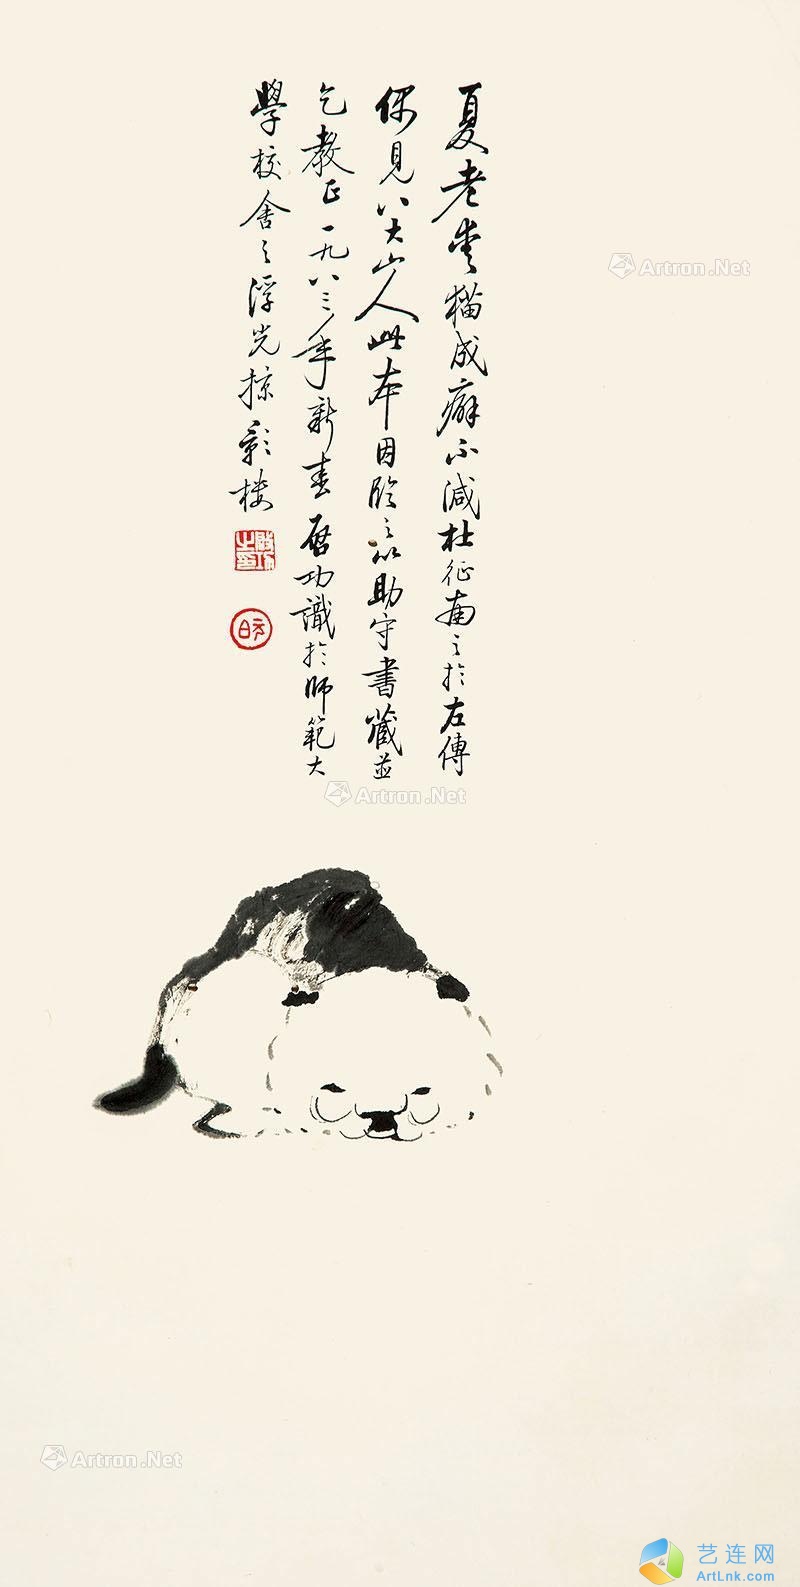 夏老爱猫成癖不减杜征南之於左傳
偶見八大山人此本因臨之以助守書藏並
乞教正一九八三年新春啓功識於師範大
學校舍之浮光掠影楼
啟功之印
Artron.Net
Artron.Net
Artron.Net
艺连网
ArtLnk.com